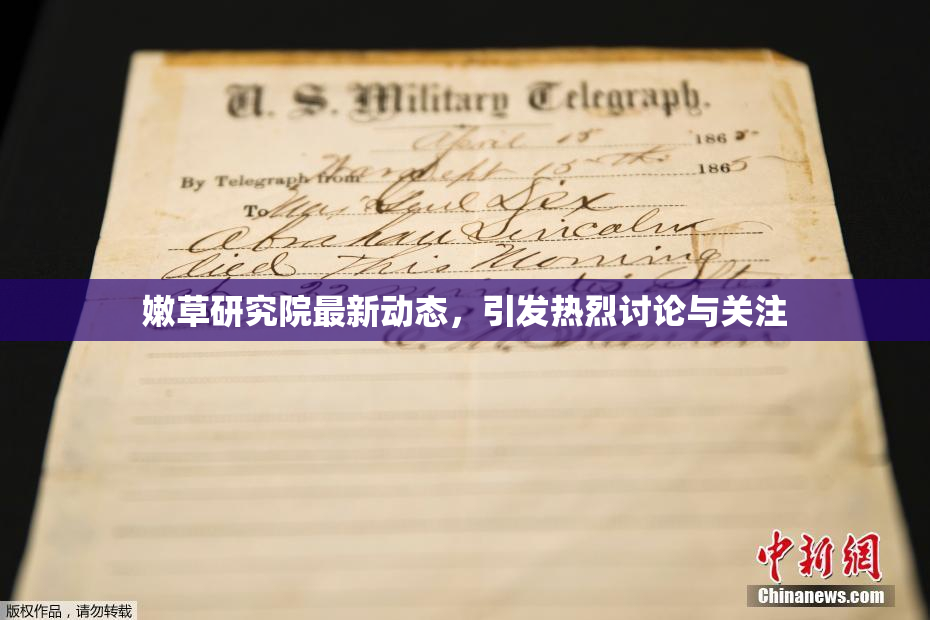 U. S. Military Telegraph.
April 15 1865
By Telegraph from War Dept 15th 1865
To Maj Genl Dix
Abraham Lincoln
died This Morning
at 22 minutes after
嫩草研究院最新动态，引发热烈讨论与关注
E. M. Stanton
中新網
Chinanews.com
版权作品，请勿转载